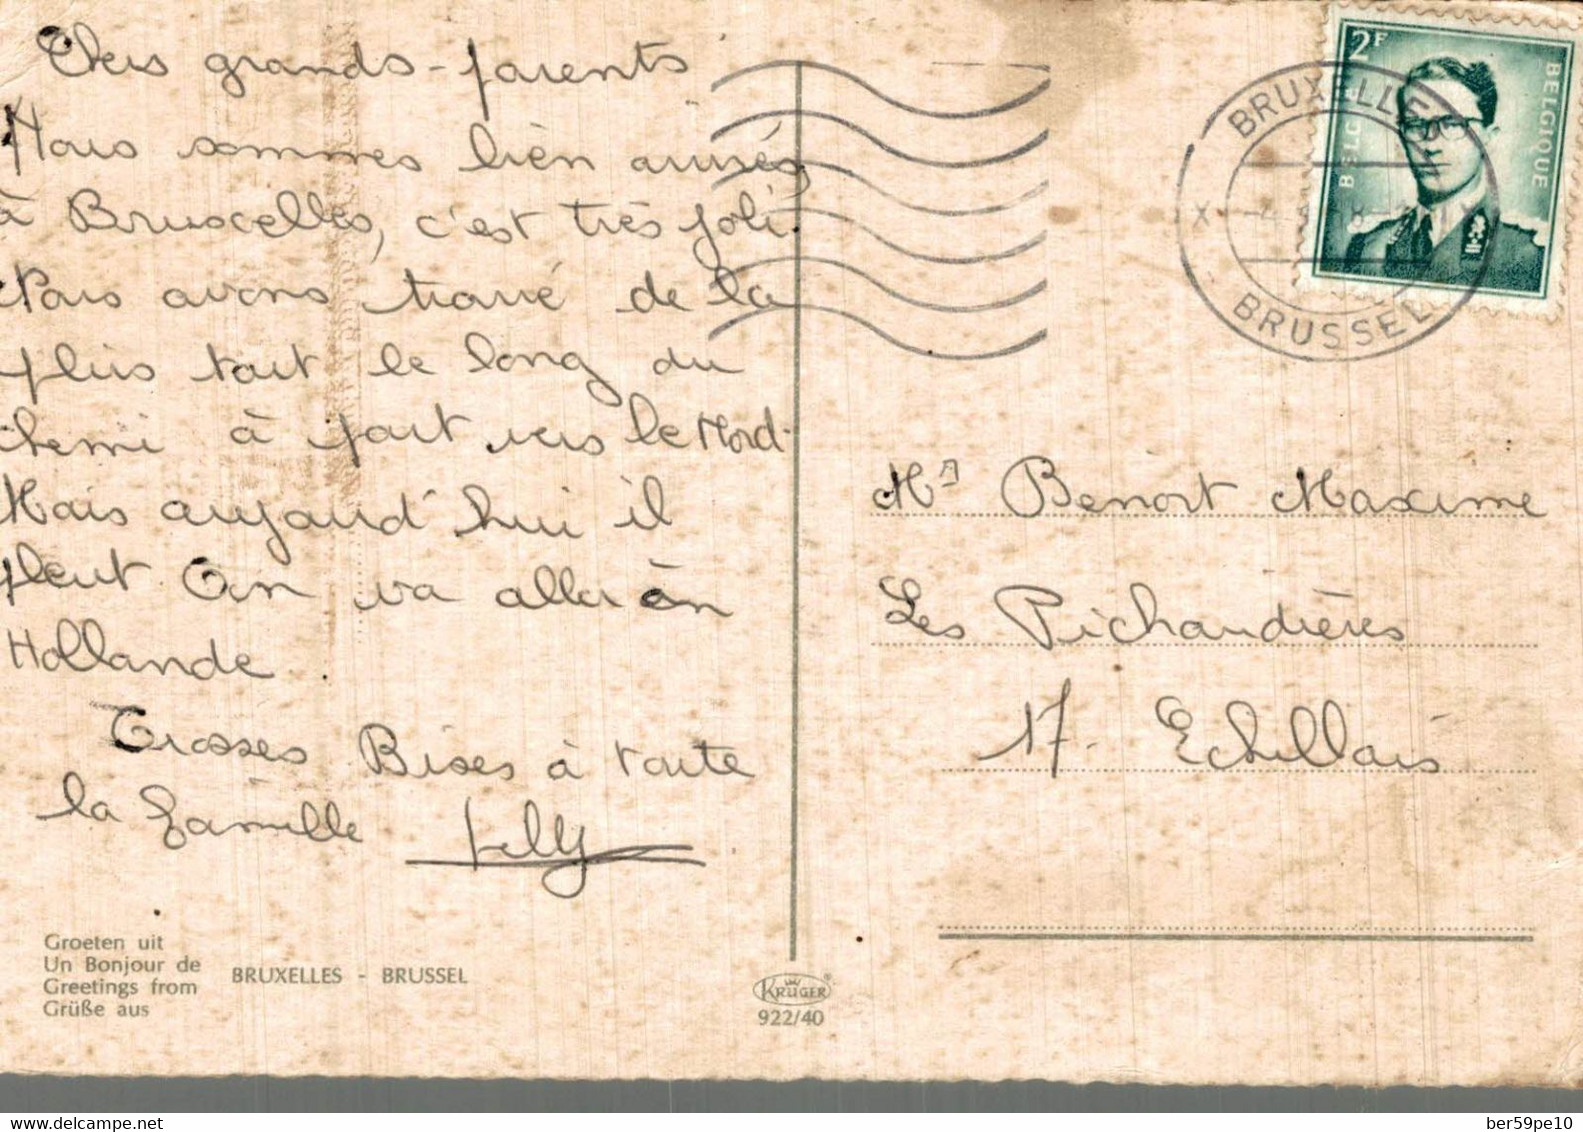 Chers grands-parents
Nous sommes bien arrivés
à Bruxcelles, c'est très joli.
Nous avons trouvé de la
pluis tout le long du
chemi à part vers le Nord.
Mais aujourd'hui il
pleut. On va aller en
Hollande
Grosses Bises à toute
la famille
Groeten uit
Un Bonjour de
Greetings from
Grüße aus
BRUXELLES - BRUSSEL
KRÜGER
922/40
2F
BELGIE
BELGIQUE
BRUXELLES
BRUSSEL
Mr Benoit Maxime
Les Pichaudières
17. Echillais
www.delcampe.net
ber59pe10